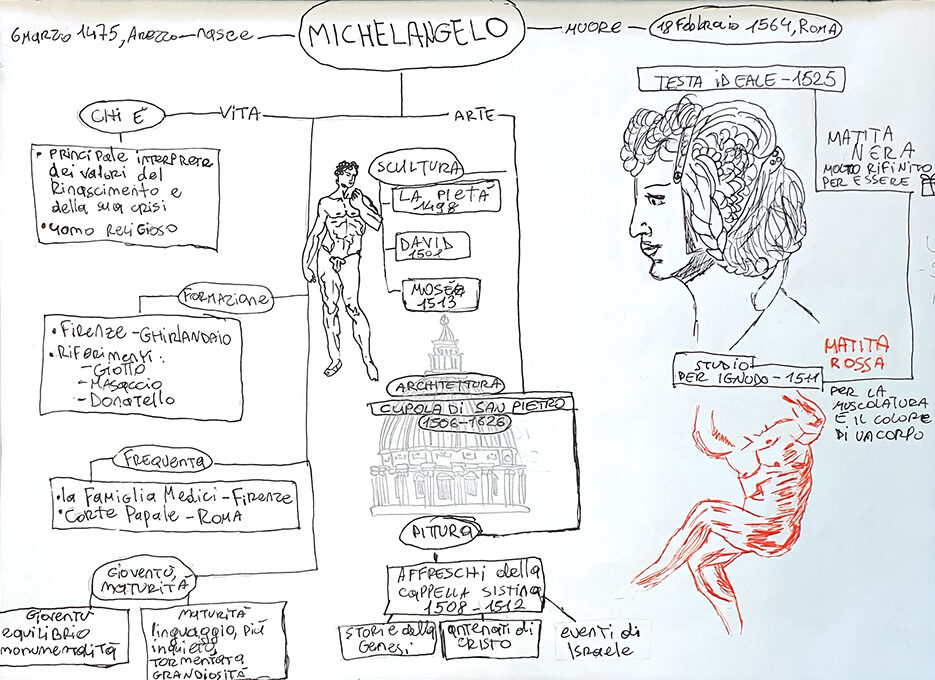 6 Marzo 1475, Arezzo - nasce
MICHELANGELO
MUORE
18 Febbraio 1564, ROMA
CHI È
VITA
ARTE
• PRINCIPALE INTERPRETE
dei valori del
Rinascimento e
della sua crisi
• UOMO RELIGIOSO
FORMAZIONE
• FIRENZE - GHIRLANDAIO
• RIFERIMENTI:
- GIOTTO
- MASACCIO
- DONATELLO
FREQUENTA
• la FAMIGLIA MEDICI - FIRENZE
• CORTE PAPALE - ROMA
GIOVENTÙ,
MATURITÀ
GIOVENTÙ
equilibrio
monumentalità
MATURITÀ
linguaggio, più
inquieto,
TORMENTATA
GRANDIOSITÀ
SCULTURA
LA PIETÀ
1498
DAVID
1501
MOSÈ
1513
ARCHITETTURA
CUPOLA DI SAN PIETRO
1506-1626
PITURA
AFFRESCHI della
CAPPELLA SISTINA
1508 - 1512
STORIE della
Genesi
antenati di
CRISTO
eventi di
Israele
TESTA IDEALE - 1525
MATITA
NERA
MOLTO RIFINITO
PER ESSERE
STUDIO
PER IGNUDO - 1511
MATITA
ROSSA
PER LA
MUSCOLATURA
E IL COLORE
DI UN CORPO